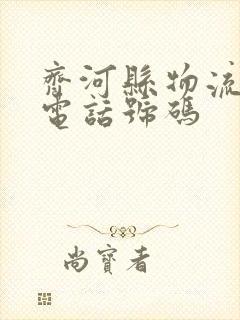 齊河縣物流
電話號碼
尚寶者